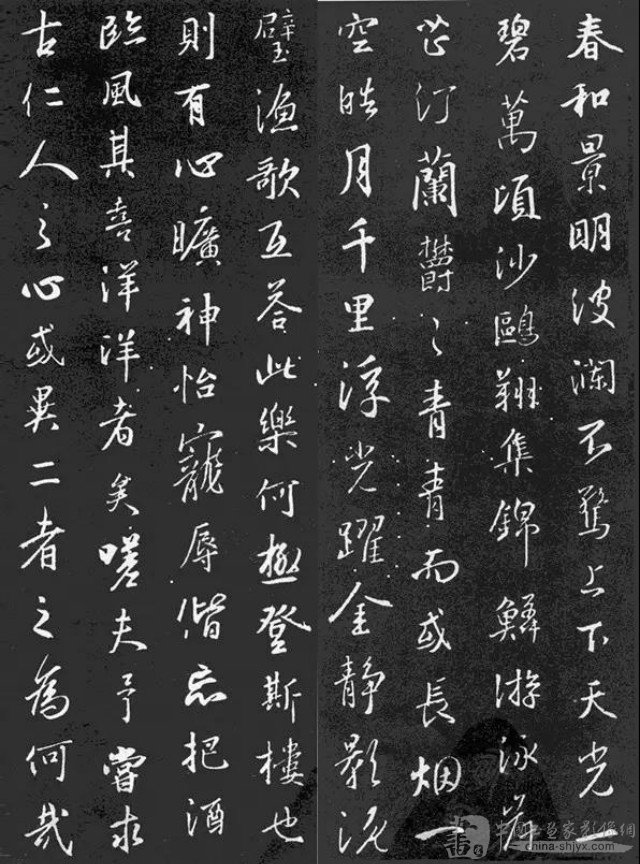 春和景明波瀾不驚上下天光一
碧萬頃沙鷗翔集錦鱗游泳岸
芷汀蘭鬱々青青而或長烟一
空皓月千里浮光躍金靜影沉
璧漁歌互答此樂何極登斯樓也
則有心曠神怡寵辱偕忘把酒
臨風其喜洋洋者矣嗟夫予嘗求
古仁人之心或異二者之為何哉
china-shjyx.com